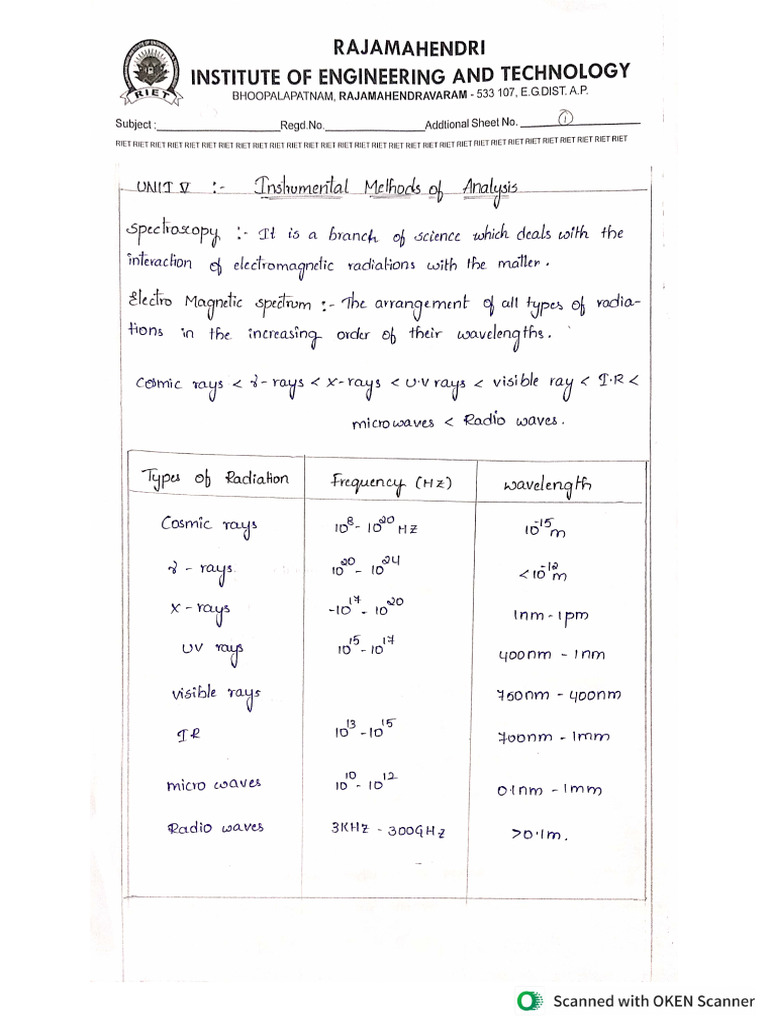 RAJAMAHENDRI
INSTITUTE OF ENGINEERING AND TECHNOLOGY
BHOOPALAPATNAM, RAJAMAHENDRAVARAM - 533 107, E.G.DIST. A.P.
RIET
Subject : Regd.No. Addtional Sheet No. 1
RIET RIET RIET RIET RIET RIET RIET RIET RIET RIET RIET RIET RIET RIET RIET RIET RIET RIET RIET RIET RIET RIET RIET RIET RIET RIET RIET RIET RIET
UNIT V :- Instrumental Methods of Analysis
Spectroscopy :- It is a branch of science which deals with the
interaction of electromagnetic radiations with the matter.
Electro Magnetic spectrum :- The arrangement of all types of radia-
tions in the increasing order of their wavelengths.
Cosmic rays < γ-rays < X-rays < U.V rays < visible ray < I.R <
microwaves < Radio waves.
Types of Radiation Frequency (HZ) wavelength
Cosmic rays 10⁸ - 10²⁰ HZ 10⁻¹⁵m
γ - rays 10²⁰ - 10²⁴ <10⁻¹²m
X - rays -10¹⁷ - 10²⁰ 1nm - 1pm
UV rays 10¹⁵ - 10¹⁷ 400nm - 1nm
visible rays 750nm - 400nm
IR 10¹³ - 10¹⁵ 700nm - 1mm
micro waves 10¹⁰ - 10¹² 0.1nm - 1mm
Radio waves 3KHZ - 300GHZ >0.1m.
Scanned with OKEN Scanner